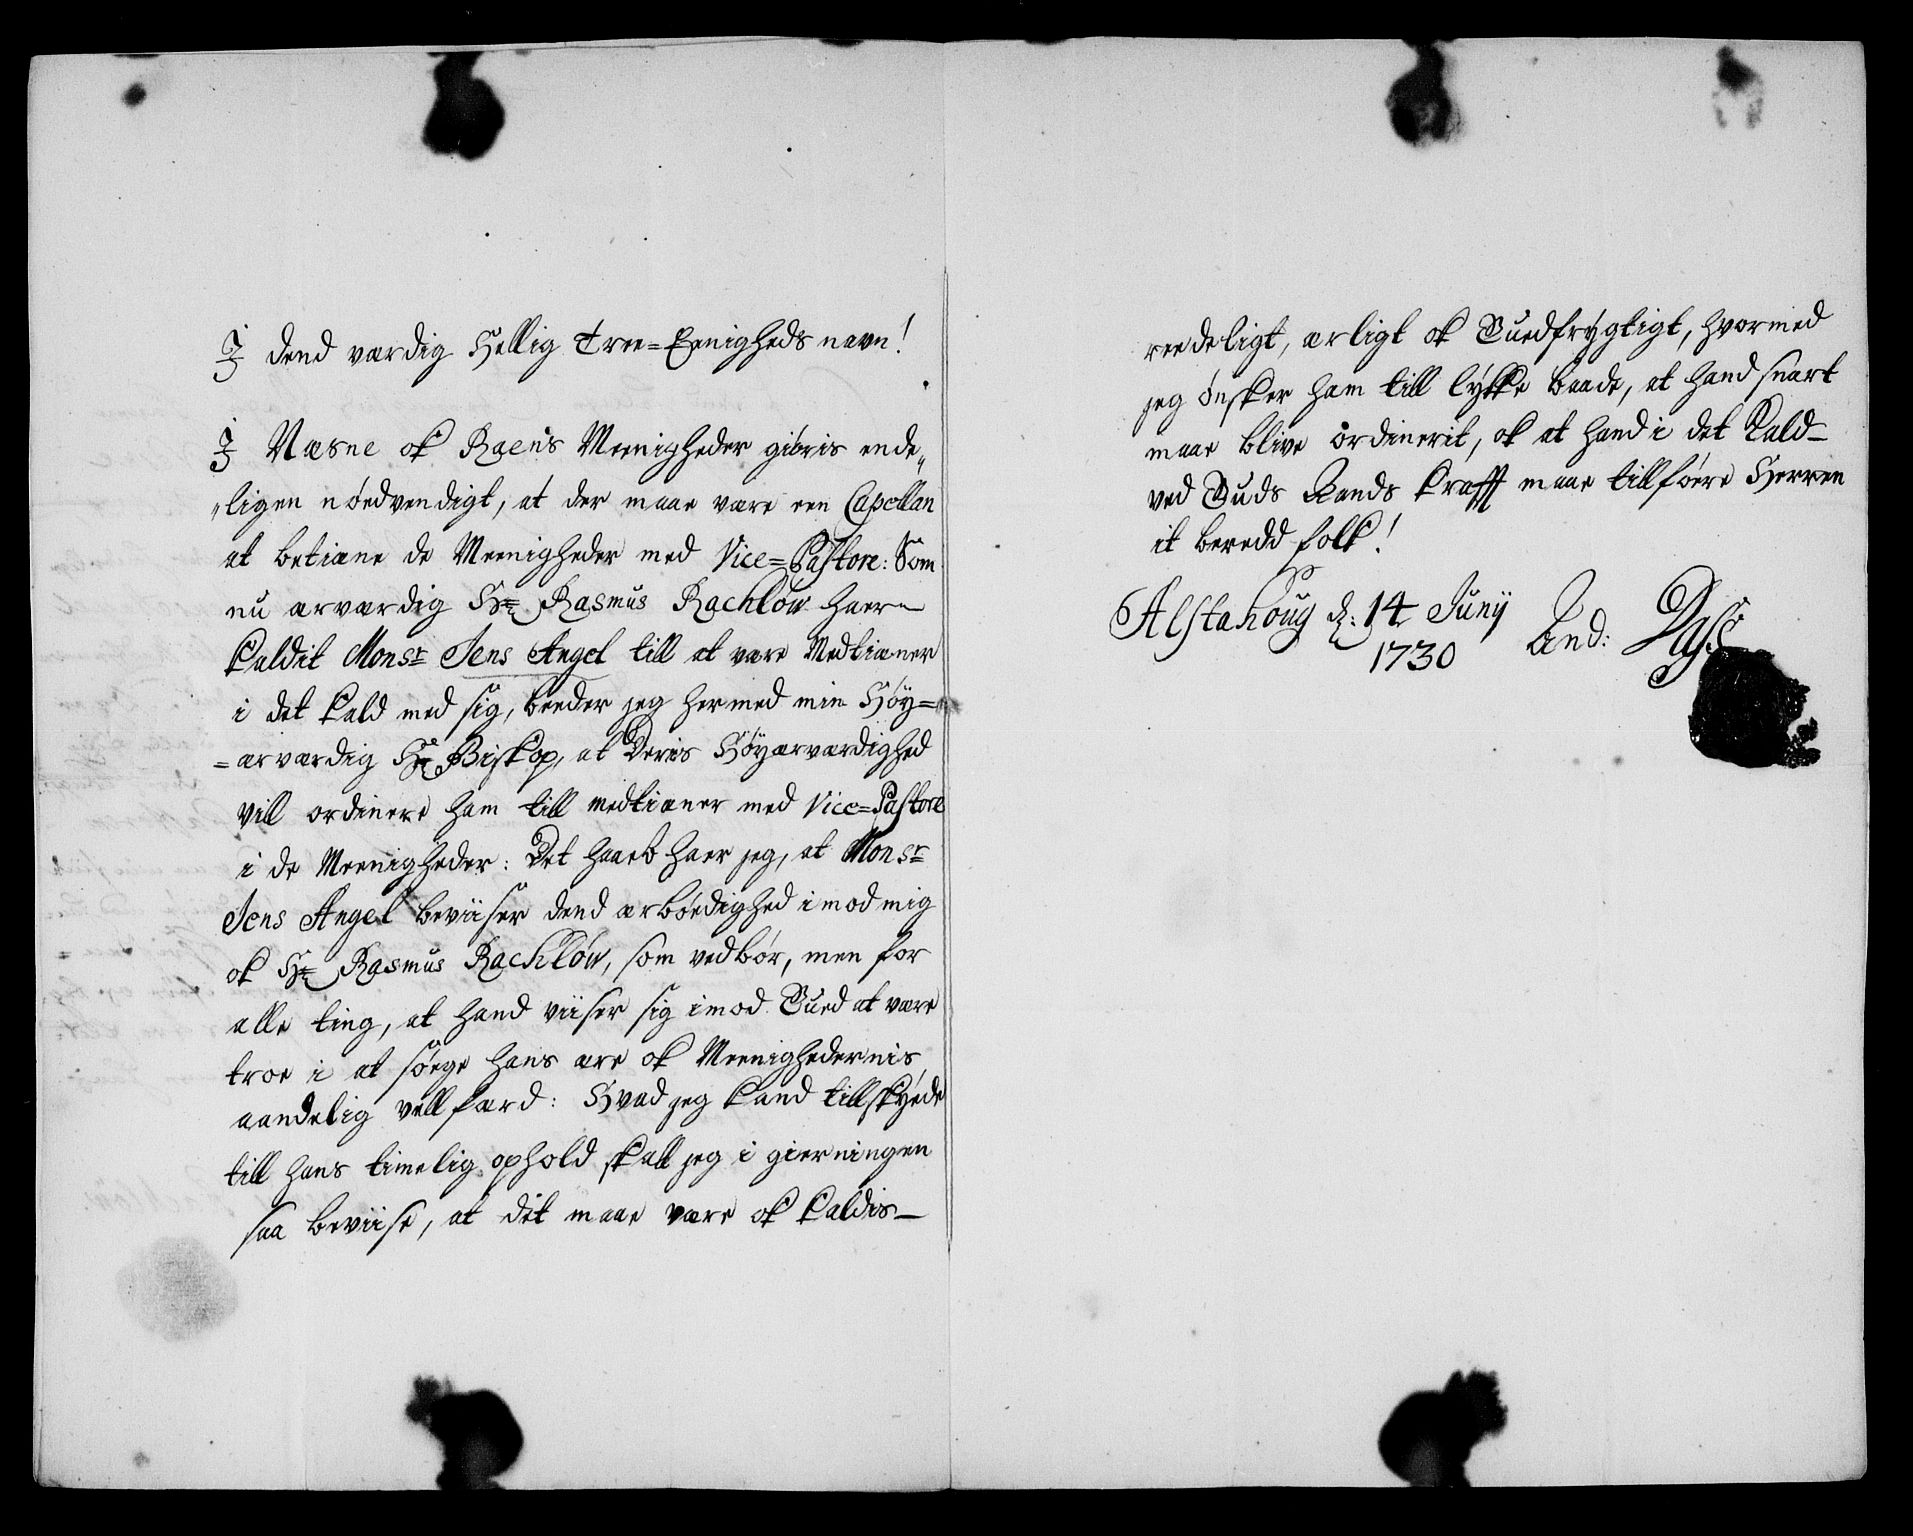 I dend værdig Hellig Tree=Eenigheds navn!
I Næsne ok Raens Meenigheder giöris ende„
„ligen nöedvendigt, at der maae være een Capellan
at betiæne de Meenigheder med Vice=Pastore: Som
nu ærværdig Hr Rasmus Rachlöw haer
kaldit Monsr Jens Angel till at være Medtiæner
i det kald med sig, beeder jeg hermed min Höy=
=ærværdig Hr Biskop, at Deris Höyærværdighed
vill ordinere ham till medtiæner med Vice=Pastore
i de Meenigheder: Det haab haer jeg, at Monsr
Jens Angel beviiser dend ærbödighed imod mig
ok Hr Rasmus Rachlöw, som vedbör, men for
alle ting, at hand viiser sig imod Gued at være
troe i at söege hans ære ok Meenighedernis
aandelig vellfærd: Hvad jeg kand tillskyede
till hans timelig ophold skall jeg i gierningen
saa beviise, at dit maae være ok kaldis
reedeligt, ærligt ok Guedfrygtigt, hvormed
jeg önsker ham till lykke baade, at hand snart
maae blive ordinerit, ok at hand i det Kald
ved Guds Aands krafft maae tillföere Herren
it beredd folk!
Alstahoug d: 14 Junij And: Dass
1730